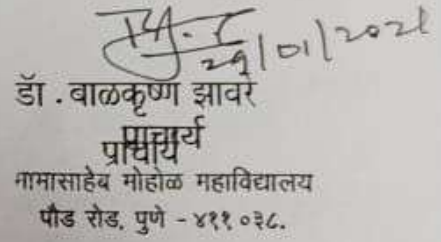 29/01/2021
डॉ. बाळकृष्ण झावरे
प्राचार्य
प्राचार्य
मामासाहेब मोहोळ महाविद्यालय
पौड रोड, पुणे - ४११०३८.